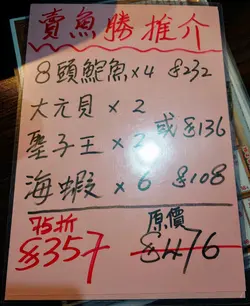 賣魚勝推介
8頭鮑魚×4 $232
大元貝×2
聖子王×2 或$136
海蝦×6 $108
75折 原價
$357 $476